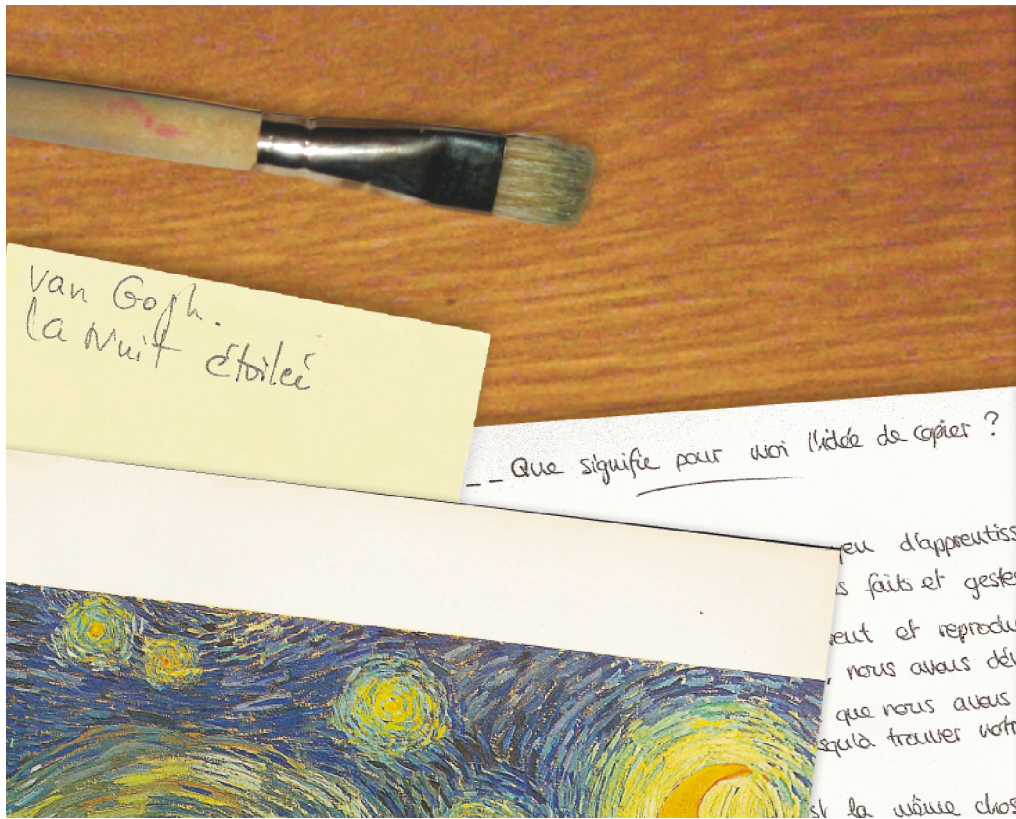 van Gogh.
la Nuit étoileé
_ _ Que signifie pour moi l'idée de copier ?
yeu d'apprentiss
s faits et geste
veut et reprodu
nous avons dé
que nous avons
squ'à trouver notr
st la même chos